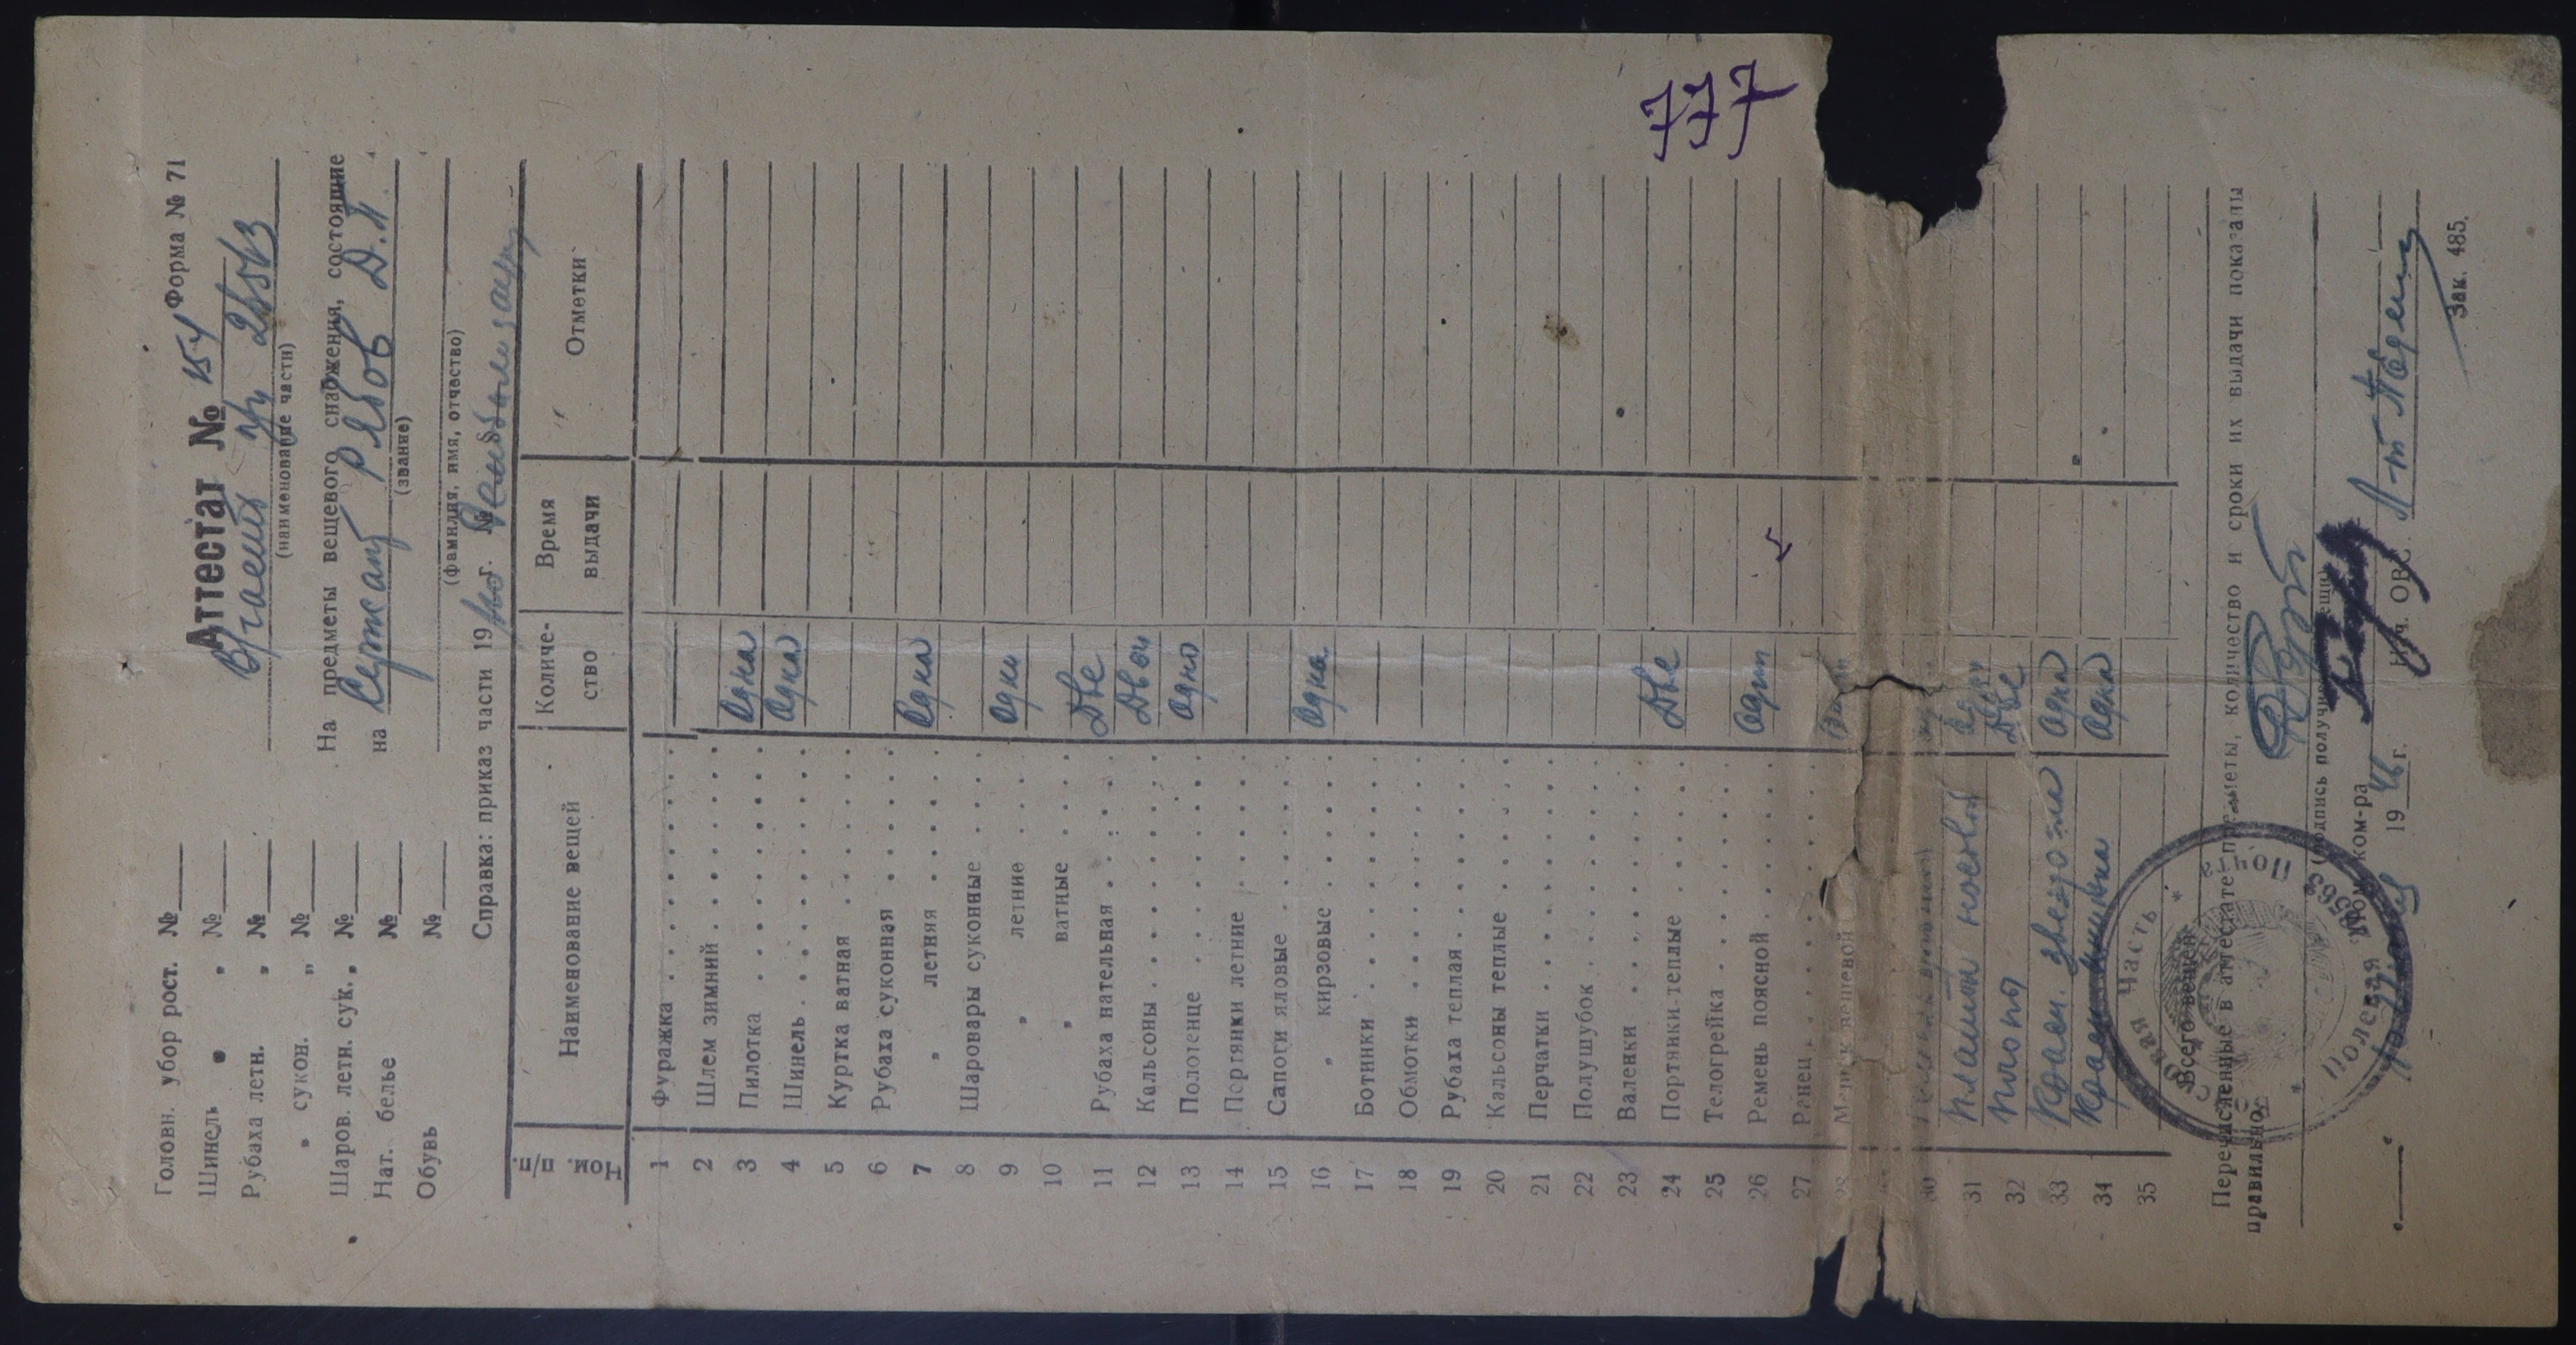 Форма № 71
Аттестат № 154
в/части п/п 28563
(наименование части)
На предметы вещевого снабжения, состоящие
на Сержант Рябов Д.П.
(звание)
(фамилия, имя, отчество)
Головн. убор рост. №
Шинель " " №
Рубаха летн. " №
" сукон. " №
Шаров. летн. сук. " №
Нат. белье №
Обувь №
Справка: приказ части 19 г. №
Ном. п/п.
Наименование вещей
Количе-ство
Время выдачи
Отметки
1 Фуражка
2 Шлем зимний
3 Пилотка Одна
4 Шинель Одна
5 Куртка ватная
6 Рубаха суконная
7 " летняя Одна
8 Шаровары суконные
9 " летние Одни
10 " ватные
11 Рубаха нательная Две
12 Кальсоны Двои
13 Полотенце Одно
14 Портянки летние
15 Сапоги яловые
16 " кирзовые Одна
17 Ботинки
18 Обмотки
19 Рубаха теплая
20 Кальсоны теплые
21 Перчатки
22 Полушубок
23 Валенки
24 Портянки теплые Две
25 Телогрейка
26 Ремень поясной Один
27 Ранец
28 Мешок вещевой
30
31 Платки носов.
32 Две
33 Красн. звездочка Одна
34 Одна
35
777
Всего вещей
Перечисленные в аттестате предметы, количество и сроки их выдачи показаны
правильно.
(подпись получившего вещи)
Пом. ком-ра
1946 г. Нач. ОВС. Л-т
Полевая Почта 28563
Часть
Зак. 485.